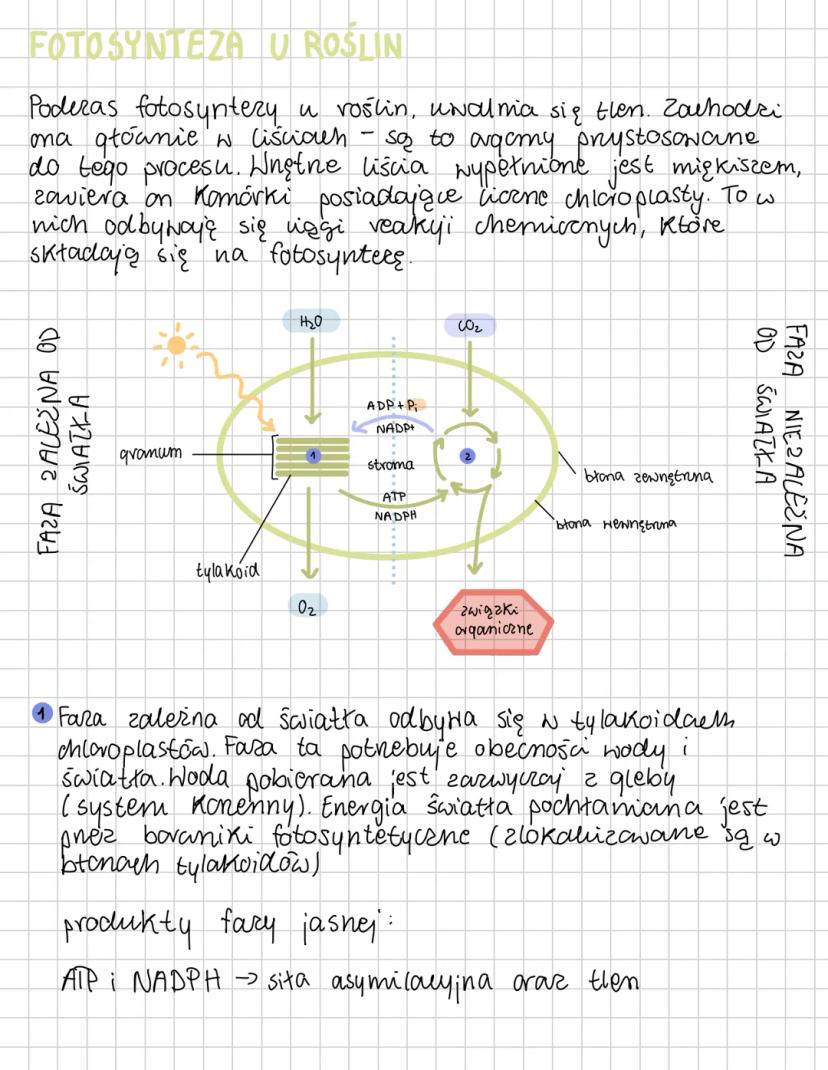 FOTOSYNTEZA U ROŚLIN
Podczas fotosyntezy u roślin, uwalnia się tlen. Zachodzi
ona głównie w liściach - są to organy przystosowane
do tego procesu. Wnętrze liścia wypełnione jest miękiszem,
zawiera on komórki posiadające liczne chloroplasty. To w
nich odbywają się ciągi reakcji chemicznych, które
składają się na fotosyntezę.
FAZA ZALEŻNA OD
ŚWIATŁA
H₂O
CO₂
FAZA NIEZALEŻNA
OD ŚWIATŁA
ADP + Pi
NADP+
granum
1
stroma
2
ATP
NADPH
błona zewnętrzna
błona wewnętrzna
tylakoid
O₂
związki
organiczne
1 Faza zależna od światła odbywa się w tylakoidach
chloroplastów. Faza ta potrzebuje obecności wody i
światła. Woda pobierana jest zazwyczaj z gleby
(system korzenny). Energia światła pochłaniana jest
przez barwniki fotosyntetyczne (zlokalizowane są w
błonach tylakoidów)
produkty fazy jasnej:
ATP i NADPH → siła asymilacyjna oraz tlen